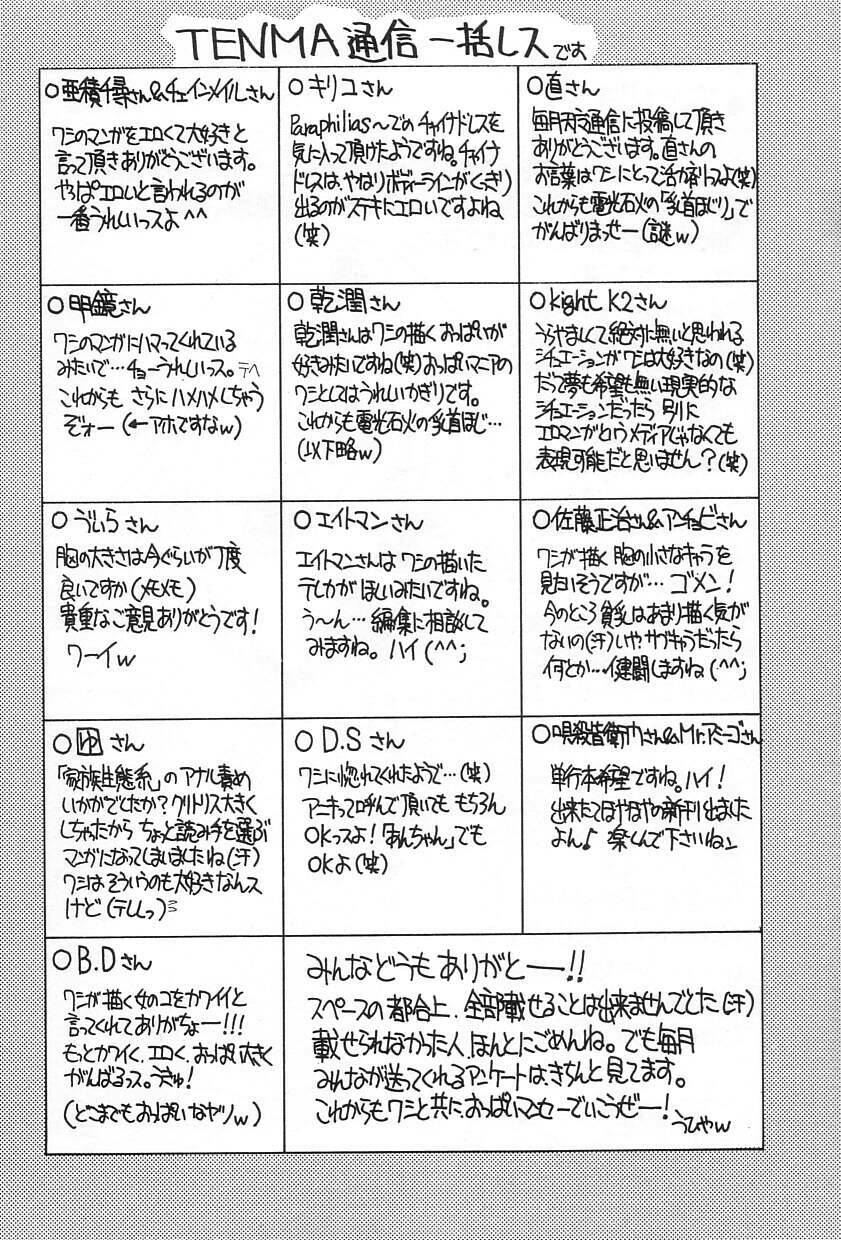 TENMA通信一括レスです
○亜積千尋さん&チェインメイルさん
ワシのマンガをエロくて大好きと
言って頂きありがとうございます。
やっぱエロいと言われるのが
一番うれしいっスよ^^
○キリコさん
Paraphilias〜でのチャイナドレスを
気に入って頂けたようですね。チャイナ
ドレスは、やはりボディーラインがくっきり
出るのがステキにエロいですよね
(笑)
○直さん
毎月天魔通信に投稿して頂き
ありがとうございます。直さんの
お言葉はワシにとって活力剤っスよ(笑)
これからも電光石火の「乳首ほじり」で
がんばりまっせー(謎w)
○明鏡さん
ワシのマンガにハマってくれている
みたいで…チョーうれしいっス。デヘ
これからも さらにハメハメしちゃう
ぞォー(←アホですなw)
○乾潤さん
乾潤さんはワシの描くおっぱいが
好きみたいですね(笑)おっぱいマニアの
ワシとしてはうれしいかぎりです。
これからも電光石火の乳首ほじ…
(以下略w)
○kight K2さん
うらやましくて絶対に無いと思われる
シチュエーションがワシは大好きなの(笑)
だって夢も希望も無い現実的な
シチュエーションだったら 別に
エロマンガというメディアじゃなくても
表現可能だと思いません?(笑)
○うぃらさん
胸の大きさは今ぐらいが丁度
良いですか(メモメモ)
貴重なご意見ありがとうです!
ワーイw
○エイトマンさん
エイトマンさんは ワシの描いた
テレカがほしいみたいですね。
う〜ん…編集に相談して
みますね。ハイ(^^;
○佐藤正治さん&アンチョビさん
ワシが描く胸の小さなキャラを
見たいそうですが…ゴメン!
今のところ貧乳はあまり描く気が
ないの(汗)いや、サブキャラだったら
何とか…健闘しますね(^^;
○ゆさん
「家族生態系」のアナル責め
いかがでしたか?クリトリス大きく
しちゃたから ちょっと読み手を選ぶ
マンガになってしまいましたね(汗)
ワシはそういうのも大好きなんス
けど(テレっ)
○D.Sさん
ワシに惚れてくれたようで…(笑)
アニキって呼んで頂いても もちろん
OKっスよ!「あんちゃん」でも
OKよ(笑)
さん&Mr.アミーゴさん
単行本希望ですね。ハイ!
出来たてほやほやの新刊出ました
よん♪ 楽しんで下さいね
○B.Dさん
ワシが描く女のコをカワイイと
言ってくれてありがちょー!!!
もっとカワイく、エロく、おっぱい大きく
がんばるっス。うきゅ!
(どこまでもおっぱいなヤツw)
みんなどうもありがとー!!
スペースの都合上、全部載せることは出来ませんでした(汗)
載せられなかった人、ほんとにごめんね。でも毎月
みんなが送ってくれるアンケートは、きちんと見てます。
これからもワシと共におっぱいマンセーでいこうぜー!
うひゃw